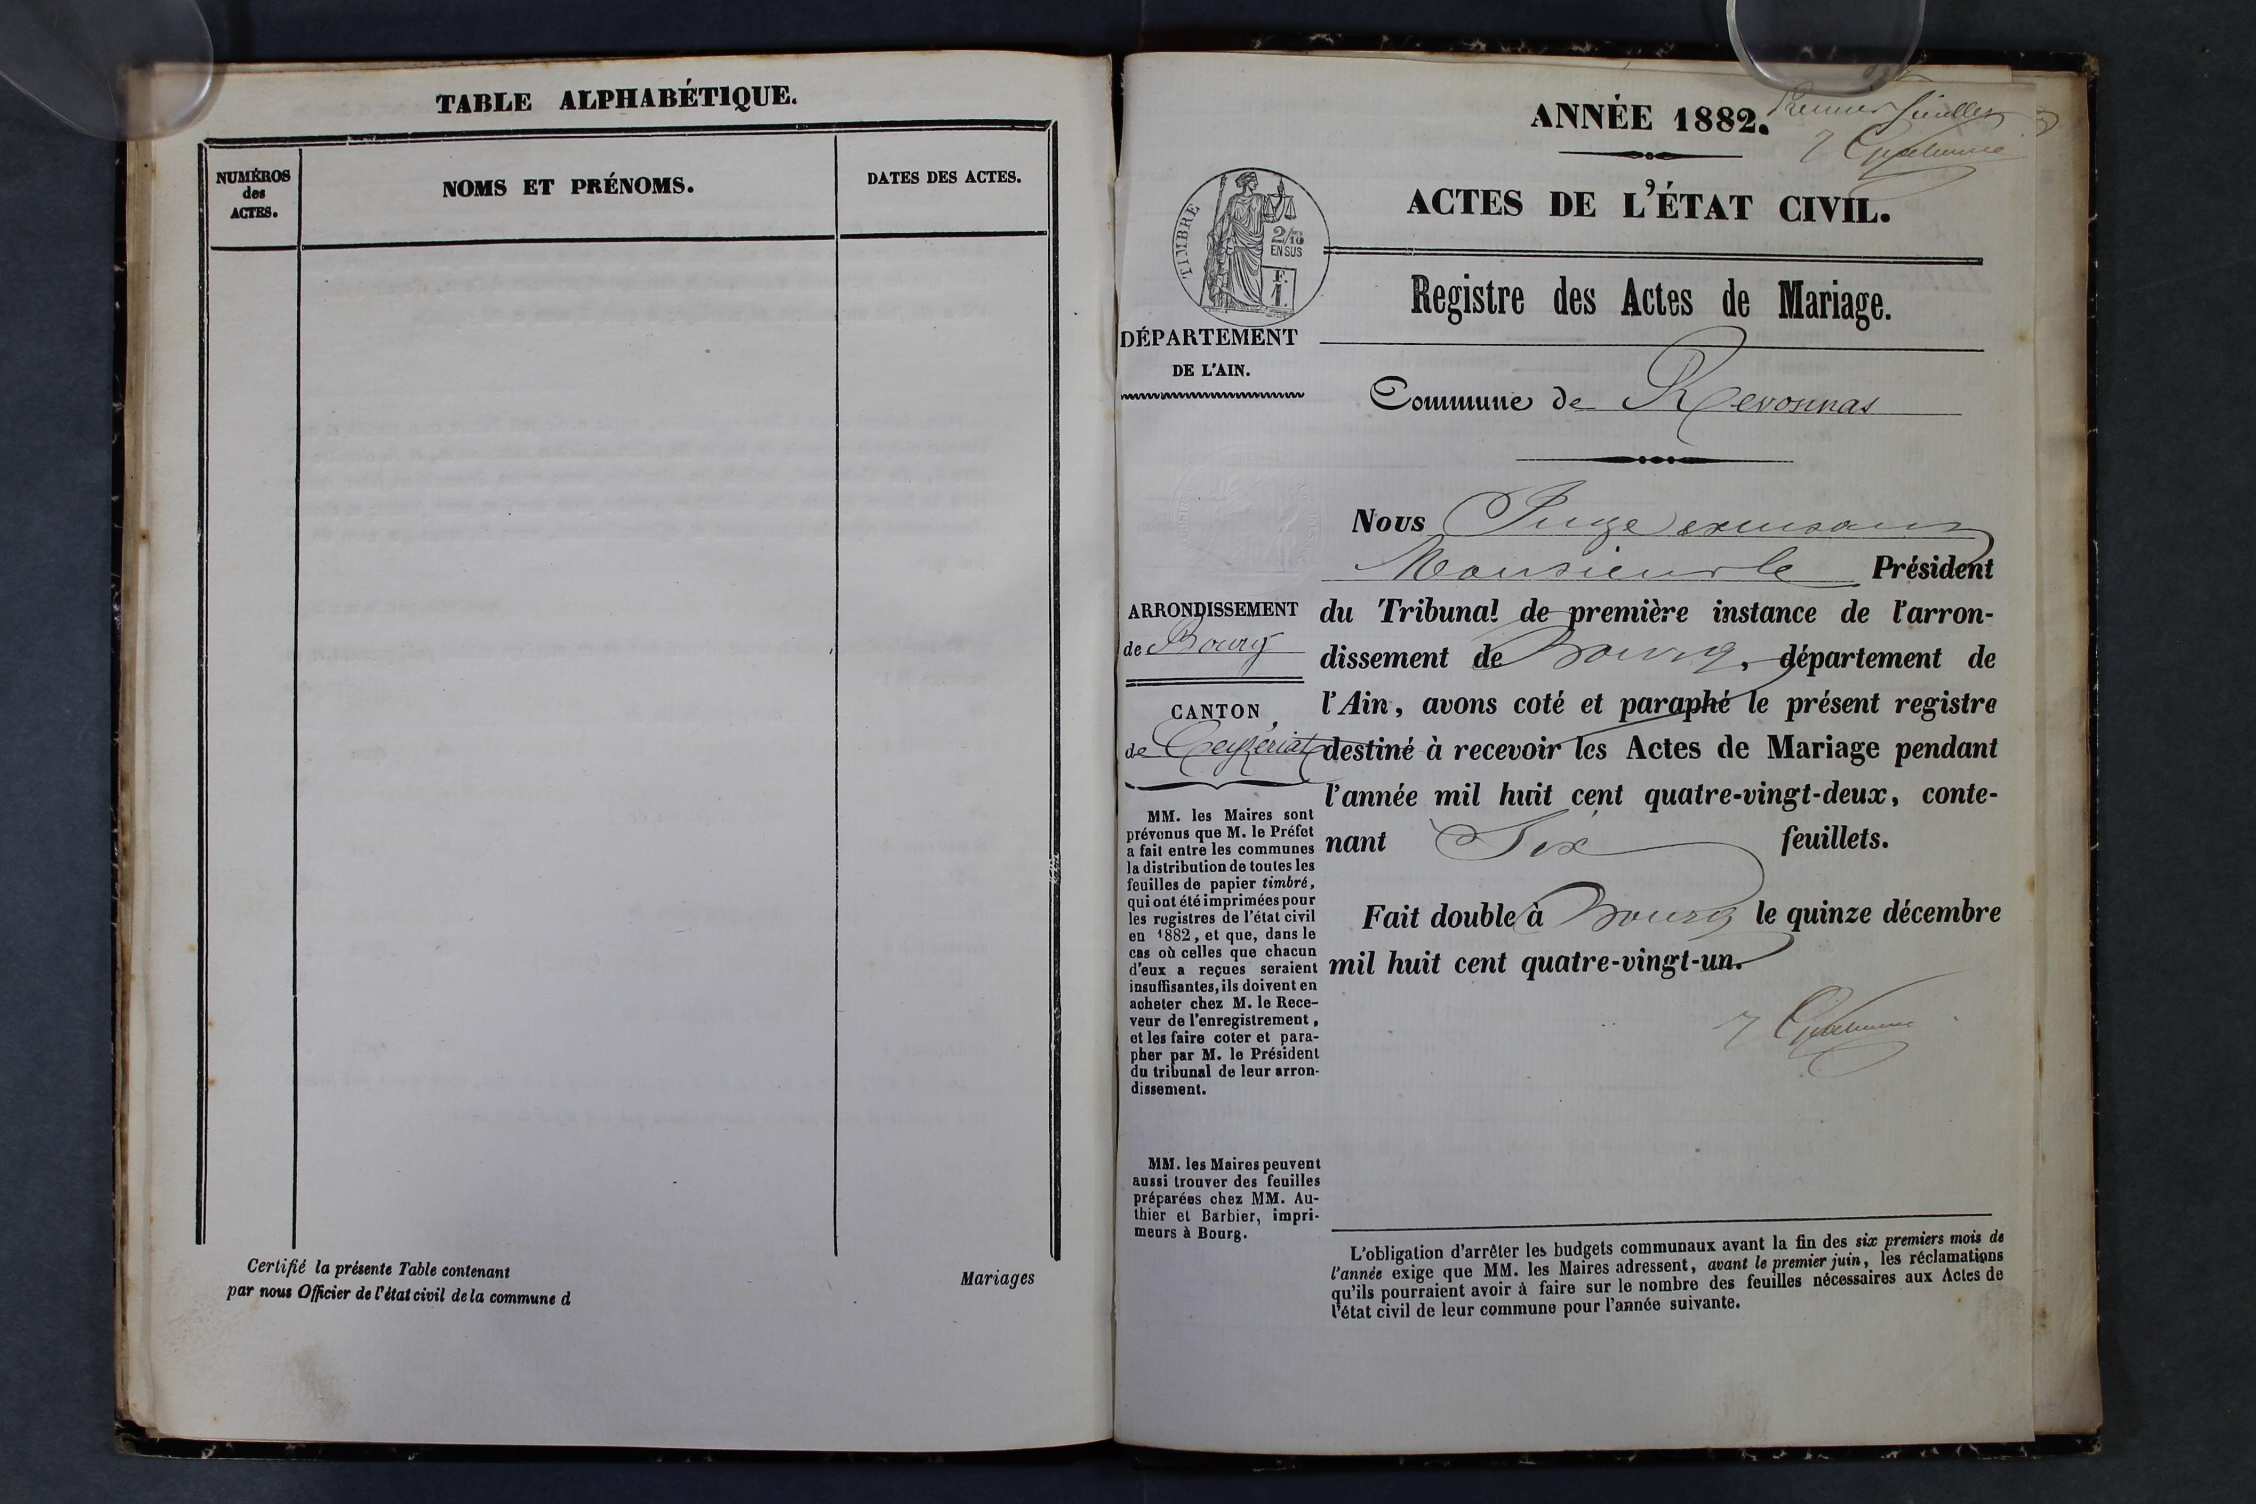 TABLE ALPHABÉTIQUE.
NUMÉROS
des
ACTES.
NOMS ET PRÉNOMS.
DATES DES ACTES.
Certifié la présente Table contenant
Mariages
par nous Officier de l'état civil de la commune d
Premier feuillet
ANNÉE 1882.
ACTES DE L'ÉTAT CIVIL.
TIMBRE
2/10
EN SUS
F.
1.
Registre des Actes de Mariage.
DÉPARTEMENT
DE L'AIN.
Commune de Revonnas
Nous Juge
Monsieur le Président
ARRONDISSEMENT
de Bourg
CANTON
de Ceyzériat
du Tribunal de première instance de l'arron-
dissement de Bourg, département de
l'Ain, avons coté et paraphé le présent registre
destiné à recevoir les Actes de Mariage pendant
l'année mil huit cent quatre-vingt-deux, conte-
nant Six feuillets.
Fait double à Bourg le quinze décembre
mil huit cent quatre-vingt-un.
MM. les Maires sont
prévenus que M. le Préfet
a fait entre les communes
la distribution de toutes les
feuilles de papier timbré,
qui ont été imprimées pour
les registres de l'état civil
en 1882, et que, dans le
cas où celles que chacun
d'eux a reçues seraient
insuffisantes, ils doivent en
acheter chez M. le Rece-
veur de l'enregistrement,
et les faire coter et para-
pher par M. le Président
du tribunal de leur arron-
dissement.
MM. les Maires peuvent
aussi trouver des feuilles
préparées chez MM. Au-
thier et Barbier, impri-
meurs à Bourg.
L'obligation d'arrêter les budgets communaux avant la fin des six premiers mois de
l'année exige que MM. les Maires adressent, avant le premier juin, les réclamations
qu'ils pourraient avoir à faire sur le nombre des feuilles nécessaires aux Actes de
l'état civil de leur commune pour l'année suivante.